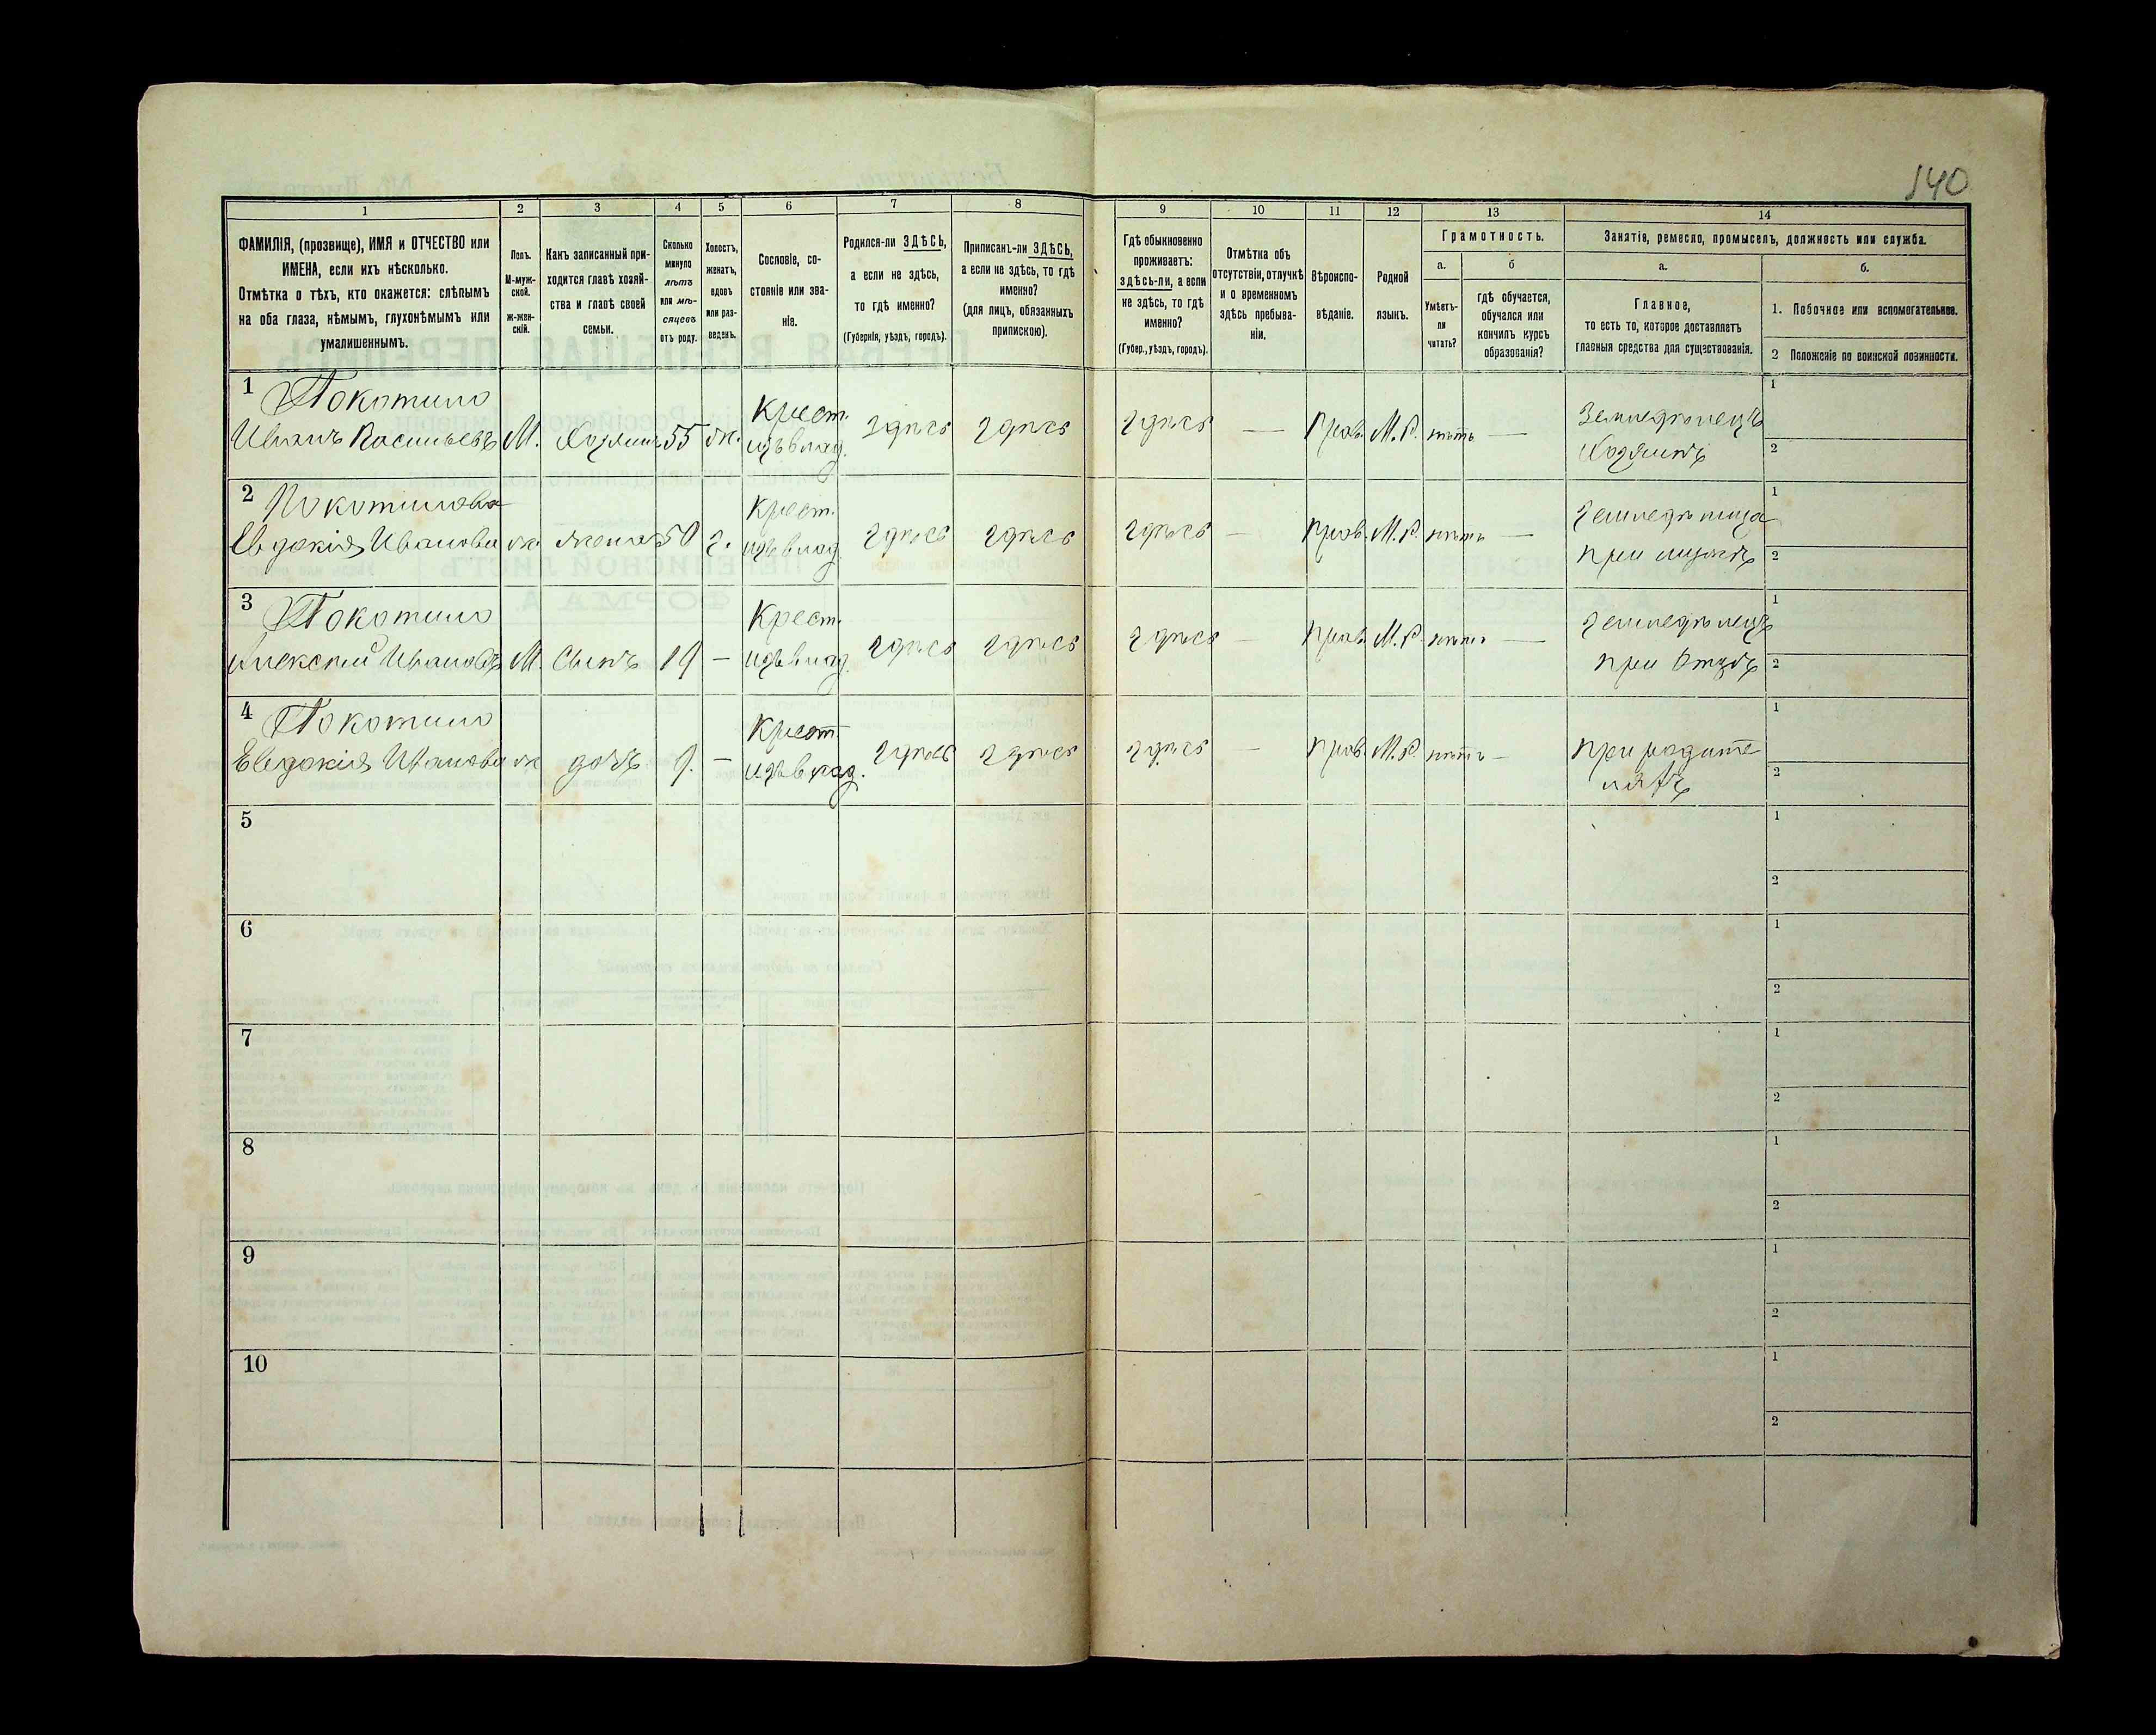 140
1 2 3 4 5 6 7 8 9 10 11 12 13 14
ФАМИЛІЯ, (прозвище), ИМЯ и ОТЧЕСТВО или
ИМЕНА, если ихъ нѣсколько.
Отмѣтка о тѣхъ, кто окажется: слѣпымъ
на оба глаза, нѣмымъ, глухонѣмымъ или
умалишеннымъ.
Полъ.
М-муж-
ской.
ж-жен-
скій.
Какъ записанный при-
ходится главѣ хозяй-
ства и главѣ своей
семьи.
Сколько
минуло
лѣтъ
или мѣ-
сяцевъ
отъ роду.
Холостъ,
женатъ,
вдовъ
или раз-
веденъ.
Сословіе, со-
стояніе или зва-
ніе.
Родился-ли ЗДѢСЬ,
а если не здѣсь,
то гдѣ именно?
(Губернія, уѣздъ, городъ).
Приписанъ-ли ЗДѢСЬ,
а если не здѣсь, то гдѣ
именно?
(для лицъ, обязанныхъ
припискою).
Гдѣ обыкновенно
проживаетъ:
здѣсь-ли, а если
не здѣсь, то гдѣ
именно?
(Губер., уѣздъ, городъ).
Отмѣтка объ
отсутствіи, отлучкѣ
и о временномъ
здѣсь пребыва-
ніи.
Вѣроиспо-
вѣданіе.
Родной
языкъ.
Грамотность.
а.
Умѣетъ-
ли
читать?
б
гдѣ обучается,
обучался или
кончилъ курсъ
образованія?
Занятіе, ремесло, промыселъ, должность или служба.
а.
Главное,
то есть то, которое доставляетъ
главныя средства для существованія.
б.
1. Побочное или вспомогательное.
2 Положеніе по воинской повинности.
1 Покотило Крест. Земледѣлецъ 1
Иванъ Васильевъ М. Хозяинъ 55 ж. изъ влад. здѣсь здѣсь здѣсь — Прав. М.Р. нѣтъ — Хозяинъ 2
2 Покотилова Крест. Земледѣлица 1
Евдокія Иванова ж. жена 50 з. изъ влад. здѣсь здѣсь здѣсь — Прав. М.Р. нѣтъ — при мужѣ 2
3 Покотило Крест. Земледѣлецъ 1
Алексѣй Ивановъ М. Сынъ 19 — изъ влад. здѣсь здѣсь здѣсь — Прав. М.Р. нѣтъ — при Отцѣ 2
4 Покотило Крест. при родите 1
Евдокія Иванова ж дочь 9. — изъ влад. здѣсь здѣсь здѣсь — Прав. М.Р. нѣтъ — ляхъ 2
5 1
2
6 1
2
7 1
2
8 1
2
9 1
2
10 1
2